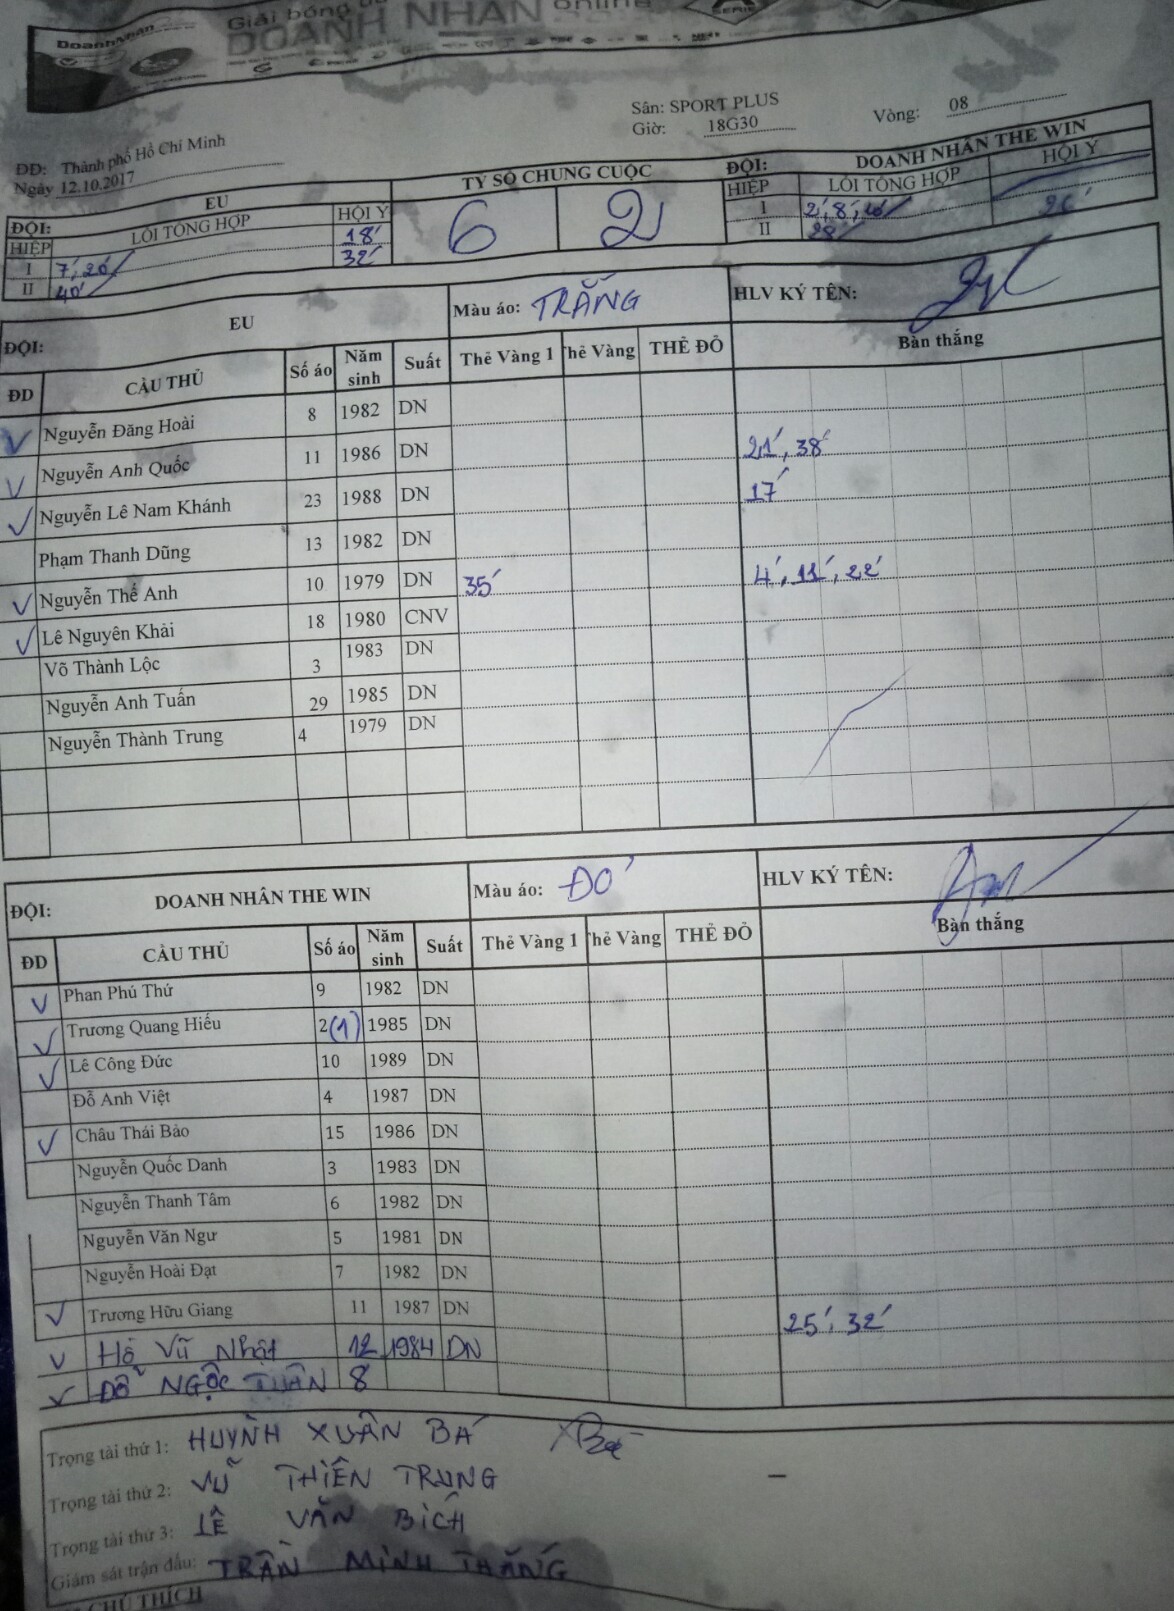 Giải bóng
DOANH NHÂN online
SERIE
DoanhNhân
Sân: SPORT PLUS
Giờ: 18G30
Vòng: 08
ĐĐ: Thành phố Hồ Chí Minh
Ngày 12.10.2017
ĐỘI: EU
HIỆP LỖI TỔNG HỢP HỘI Ý
I 7', 20' 18'
II 40' 32'
TỶ SỐ CHUNG CUỘC
6 2
ĐỘI: DOANH NHÂN THE WIN
HIỆP LỖI TỔNG HỢP HỘI Ý
I 2', 8', 10'
II 28' 26'
ĐỘI: EU Màu áo: TRẮNG HLV KÝ TÊN:
ĐD CẦU THỦ Số áo Năm sinh Suất Thẻ Vàng 1 Thẻ Vàng THẺ ĐỎ Bàn thắng
Nguyễn Đăng Hoài 8 1982 DN
Nguyễn Anh Quốc 11 1986 DN 21', 38'
Nguyễn Lê Nam Khánh 23 1988 DN 17'
Phạm Thanh Dũng 13 1982 DN
Nguyễn Thế Anh 10 1979 DN 35' 4', 11', 22'
Lê Nguyên Khải 18 1980 CNV
Võ Thành Lộc 3 1983 DN
Nguyễn Anh Tuấn 29 1985 DN
Nguyễn Thành Trung 4 1979 DN
ĐỘI: DOANH NHÂN THE WIN Màu áo: ĐỎ HLV KÝ TÊN:
ĐD CẦU THỦ Số áo Năm sinh Suất Thẻ Vàng 1 Thẻ Vàng THẺ ĐỎ Bàn thắng
Phan Phú Thứ 9 1982 DN
Trương Quang Hiếu 2(1) 1985 DN
Lê Công Đức 10 1989 DN
Đỗ Anh Việt 4 1987 DN
Châu Thái Bảo 15 1986 DN
Nguyễn Quốc Danh 3 1983 DN
Nguyễn Thanh Tâm 6 1982 DN
Nguyễn Văn Ngư 5 1981 DN
Nguyễn Hoài Đạt 7 1982 DN
Trương Hữu Giang 11 1987 DN 25', 32'
Hồ Vũ Nhật 12 1984 DN
ĐỖ NGỌC TUÂN 8
Trọng tài thứ 1: HUYNH XUÂN BÁ
Trọng tài thứ 2: VŨ THIÊN TRUNG
Trọng tài thứ 3: LÊ VĂN BÍCH
Giám sát trận đấu: TRẦN MINH THẮNG
CHÚ THÍCH